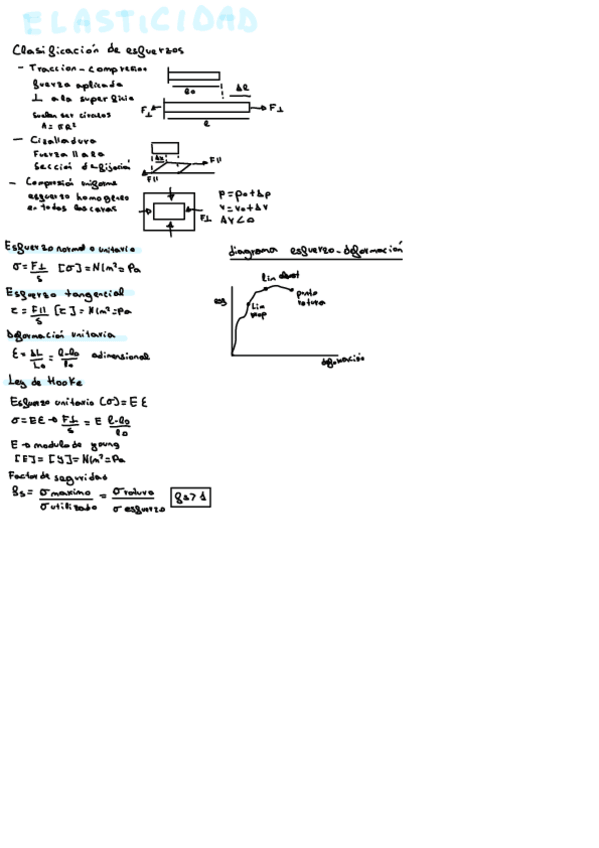 ELASTICIDAD
Clasificación de esfuerzos
- Traccion - compresion
fuerza aplicada
⊥ a la superficie
suelen ser circulos
A = πR²
l₀
Δl
F⊥
F⊥
l
- Cizalladura
Fuerza || a la
sección de fijación
Δx
F||
F||
- Compresión uniforme
esfuerzo homogeneo
en todas las caras
F⊥
P = P₀ + Δp
V = V₀ + ΔV
ΔV < 0
Esfuerzo normal o unitario
σ = F⊥/S [σ] = N/m² = Pa
Esfuerzo tangencial
τ = F||/S [τ] = N/m² = Pa
Deformación unitaria
ε = ΔL/L₀ = l-l₀/l₀ adimensional
Ley de Hooke
Esfuerzo unitario (σ) = E ε
σ = Eε → F⊥/S = E l-l₀/l₀
E → modulo de young
[E] = [Y] = N/m² = Pa
Factor de seguridad
fs = σ maximo/σ utilizado = σ rotura/σ esfuerzo fs > 1
diagrama esfuerzo - deformación
esf
lin
prop
lin elast
punto
rotura
deformación